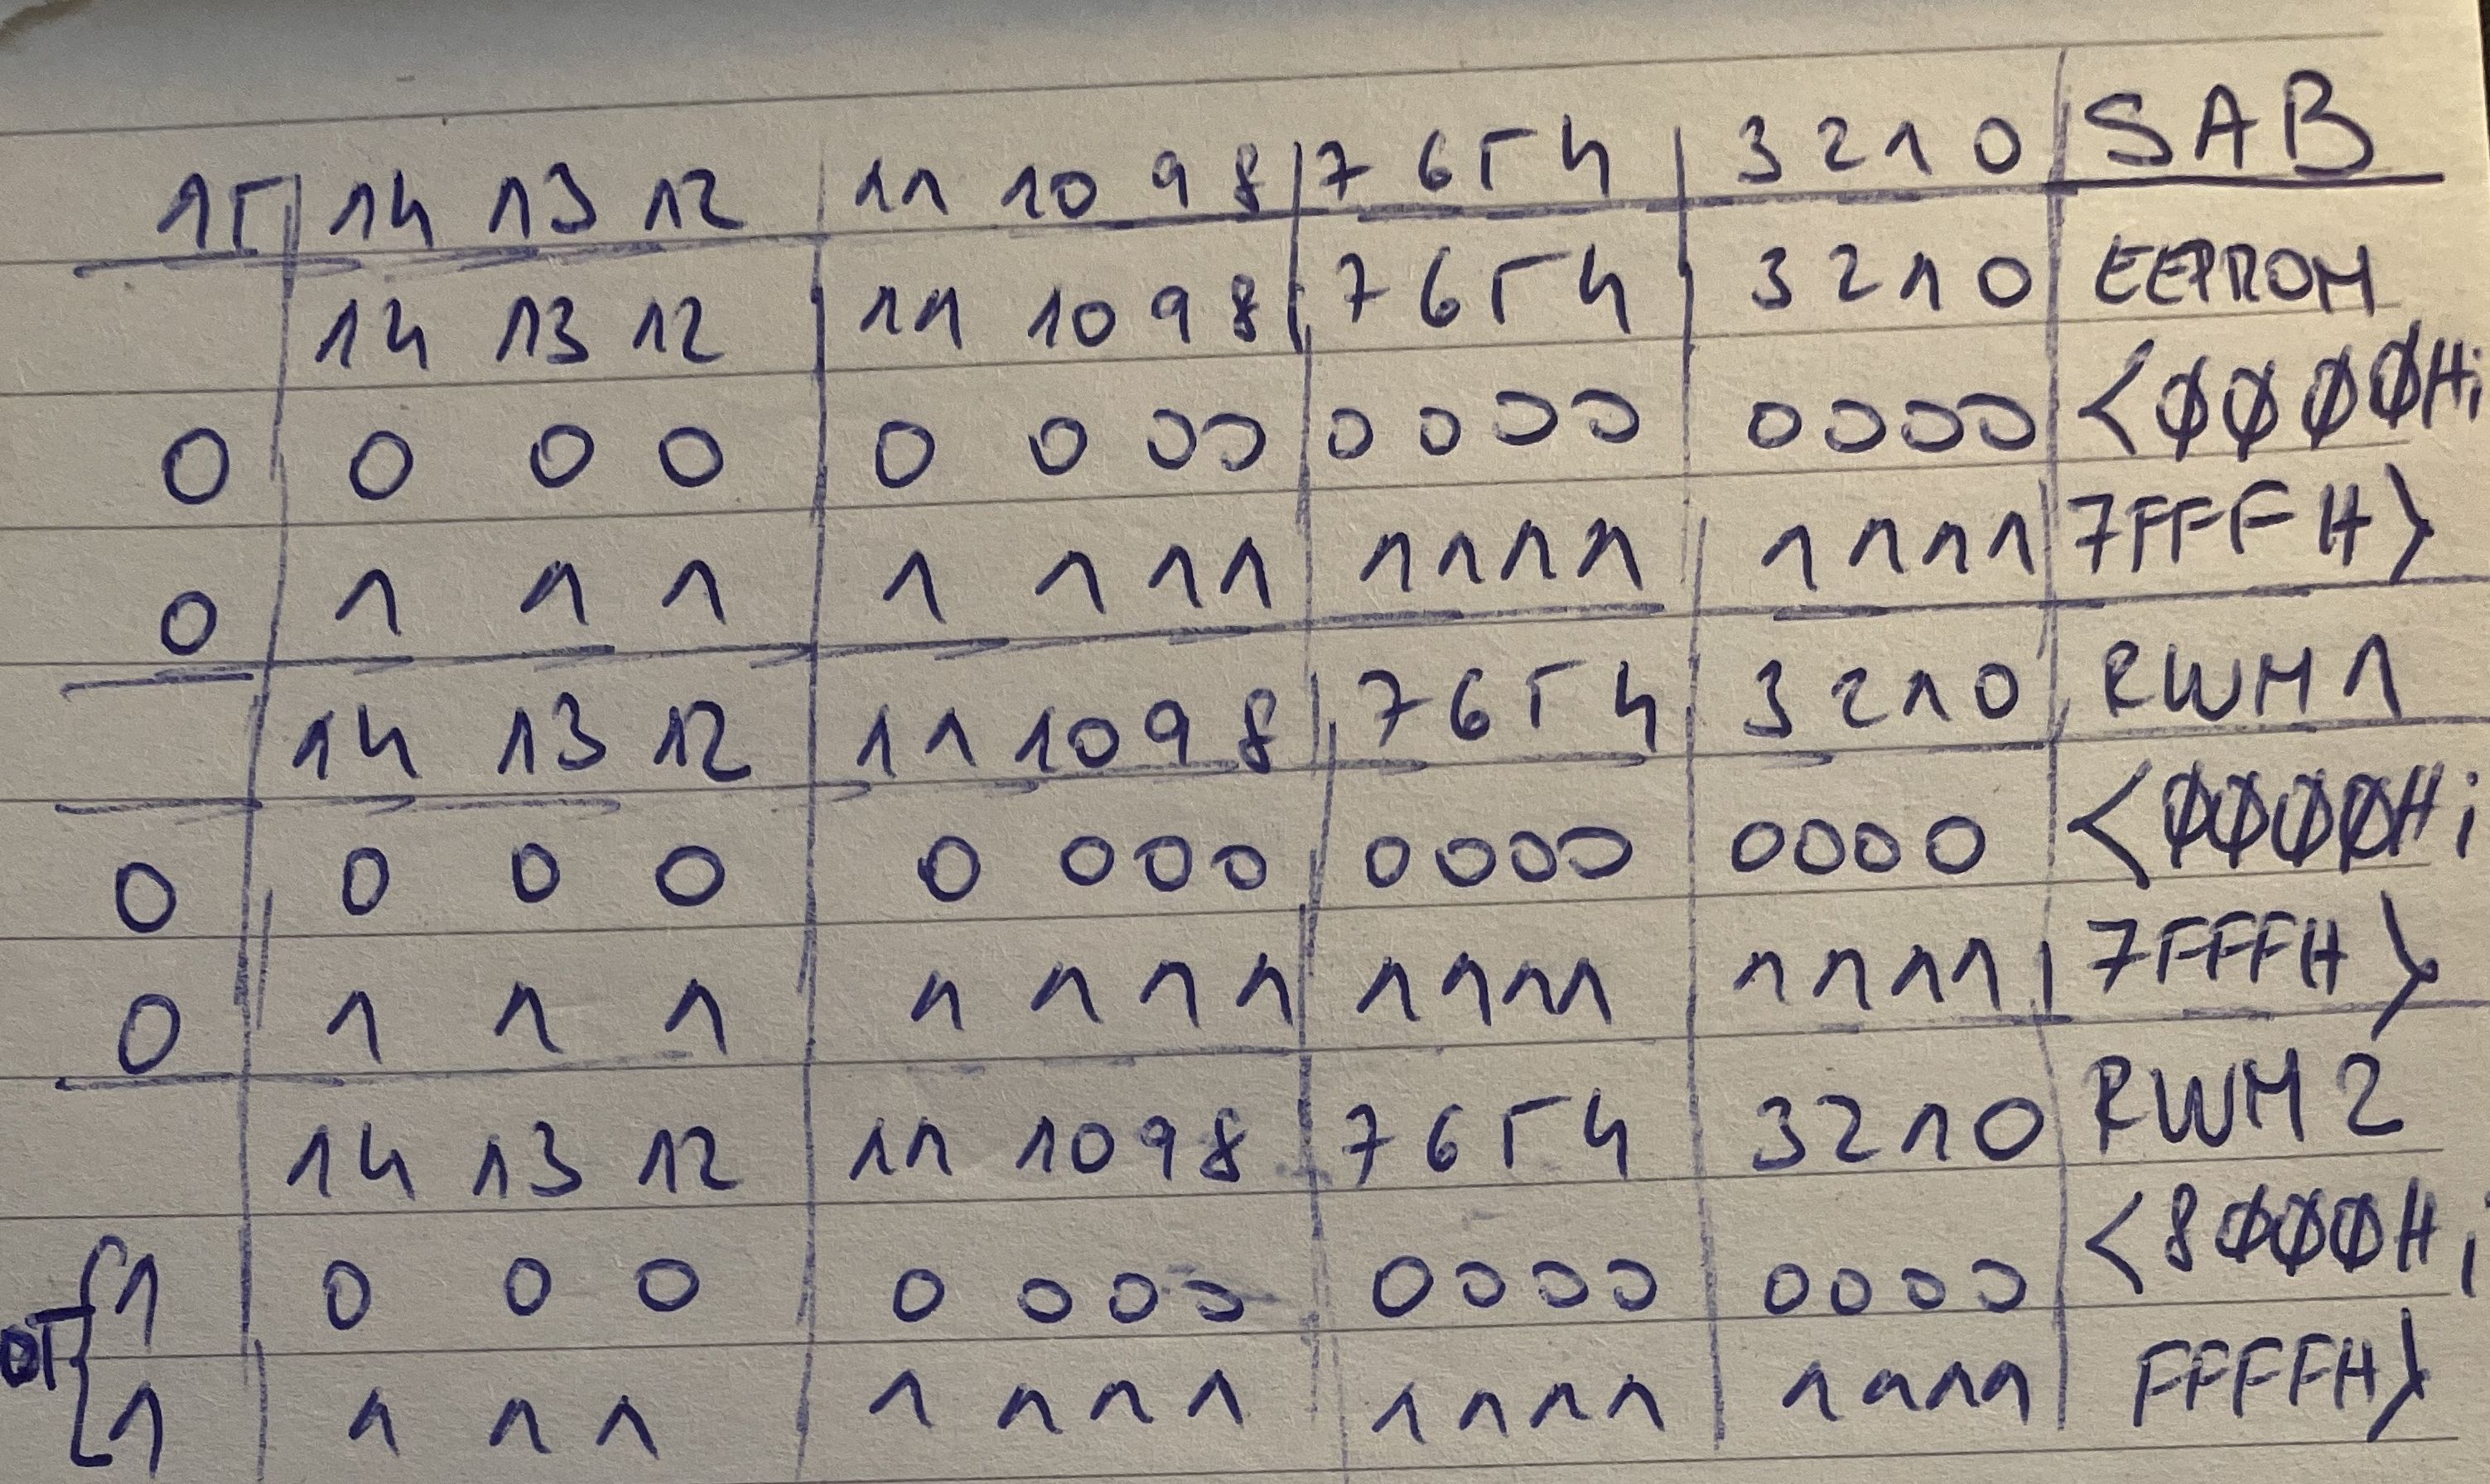 15 14 13 12 11 10 9 8 7 6 5 4 3 2 1 0 SAB
14 13 12 11 10 9 8 7 6 5 4 3 2 1 0 EEPROM
0 0 0 0 0 0 0 0 0 0 0 0 0 0 0 0 <0000H;
0 1 1 1 1 1 1 1 1 1 1 1 1 1 1 1 7FFFH>
14 13 12 11 10 9 8 7 6 5 4 3 2 1 0 RWM1
0 0 0 0 0 0 0 0 0 0 0 0 0 0 0 0 <0000H;
0 1 1 1 1 1 1 1 1 1 1 1 1 1 1 1 7FFFH>
14 13 12 11 10 9 8 7 6 5 4 3 2 1 0 RWM2
1 0 0 0 0 0 0 0 0 0 0 0 0 0 0 0 <8000H;
1 1 1 1 1 1 1 1 1 1 1 1 1 1 1 1 FFFFH>